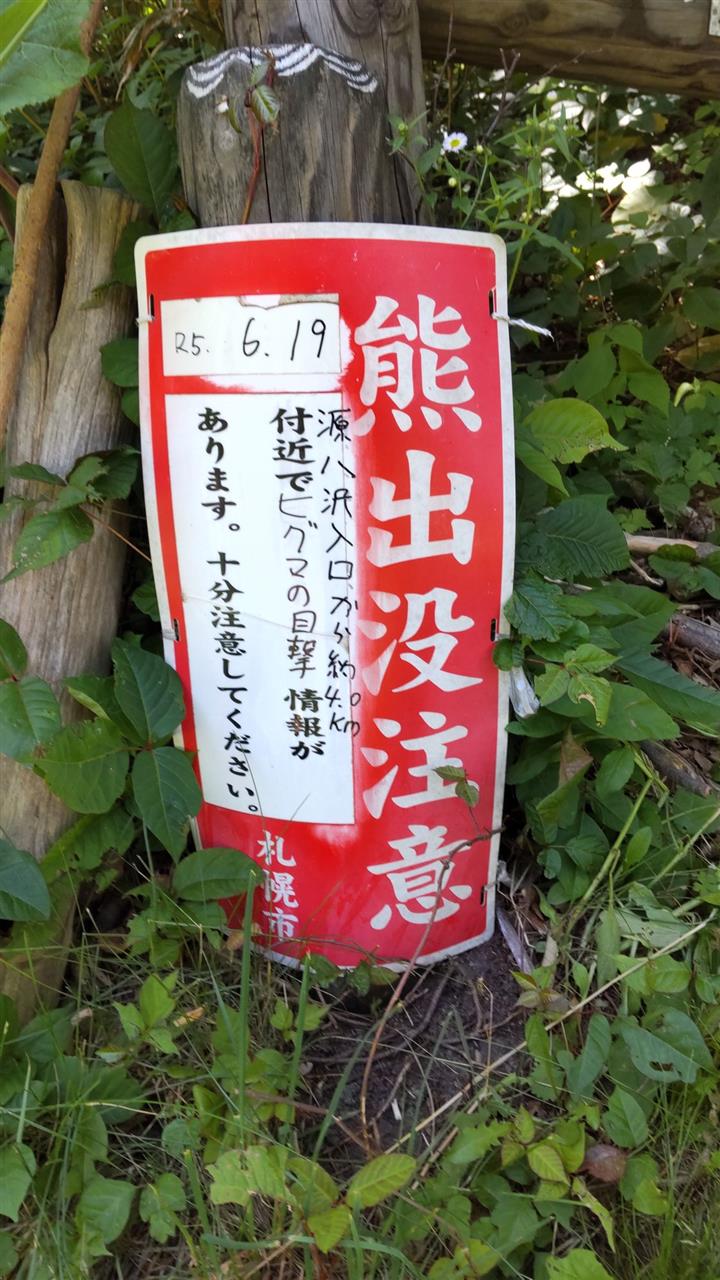 熊出没注意
R5. 6.19
源八沢入口から約4.0km
付近でヒグマの目撃情報が
あります。十分注意してください。
札幌市